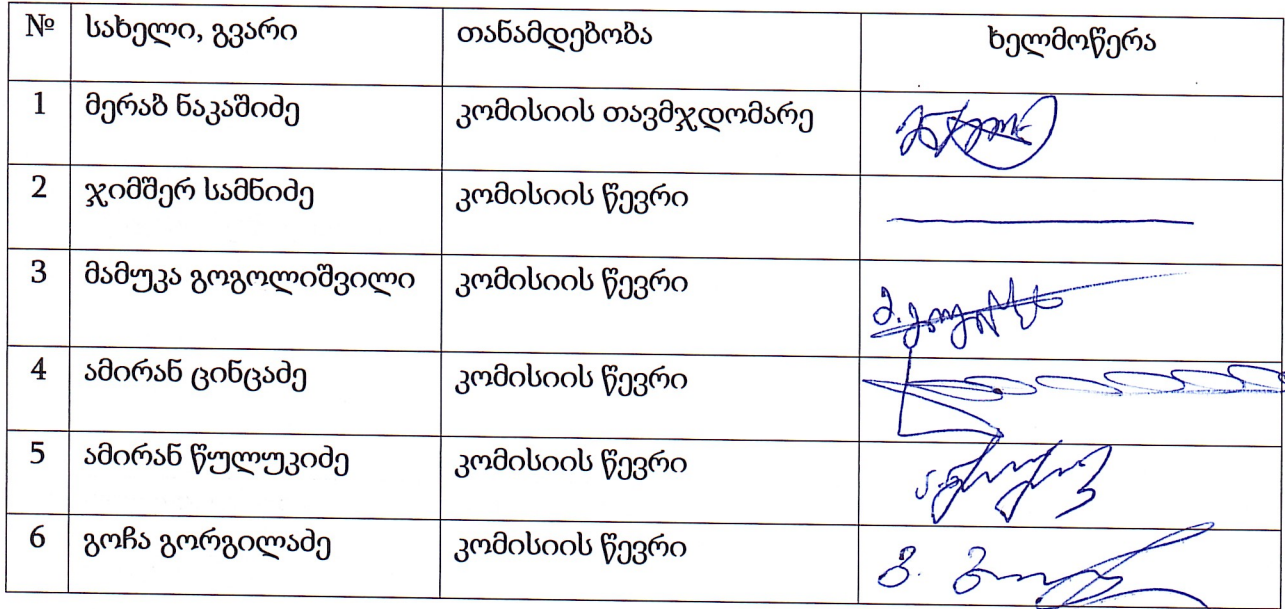 № სახელი, გვარი თანამდებობა ხელმოწერა
1 მერაბ ნაკაშიძე კომისიის თავმჯდომარე
2 ჯიმშერ სამნიძე კომისიის წევრი
3 მამუკა გოგოლიშვილი კომისიის წევრი
4 ამირან ცინცაძე კომისიის წევრი
5 ამირან წულუკიძე კომისიის წევრი
6 გოჩა გორგილაძე კომისიის წევრი